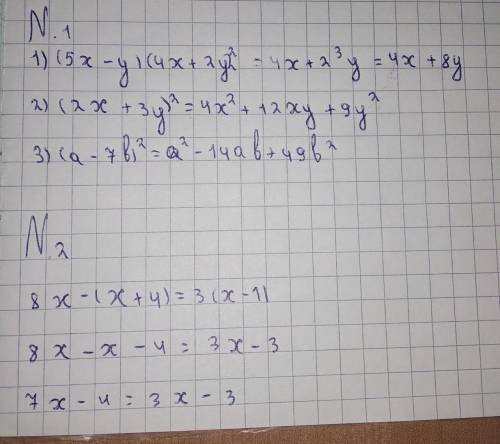 N.1
1) (5x - y) (4x + 2y² = 4x + 2³y = 4x + 8y
2) (2x + 3y)² = 4x² + 12xy + 9y²
3) (a - 7b)² = a² - 14ab + 49b²
N.2
8x - (x + 4) = 3(x - 1)
8x - x - 4 = 3x - 3
7x - 4 = 3x - 3